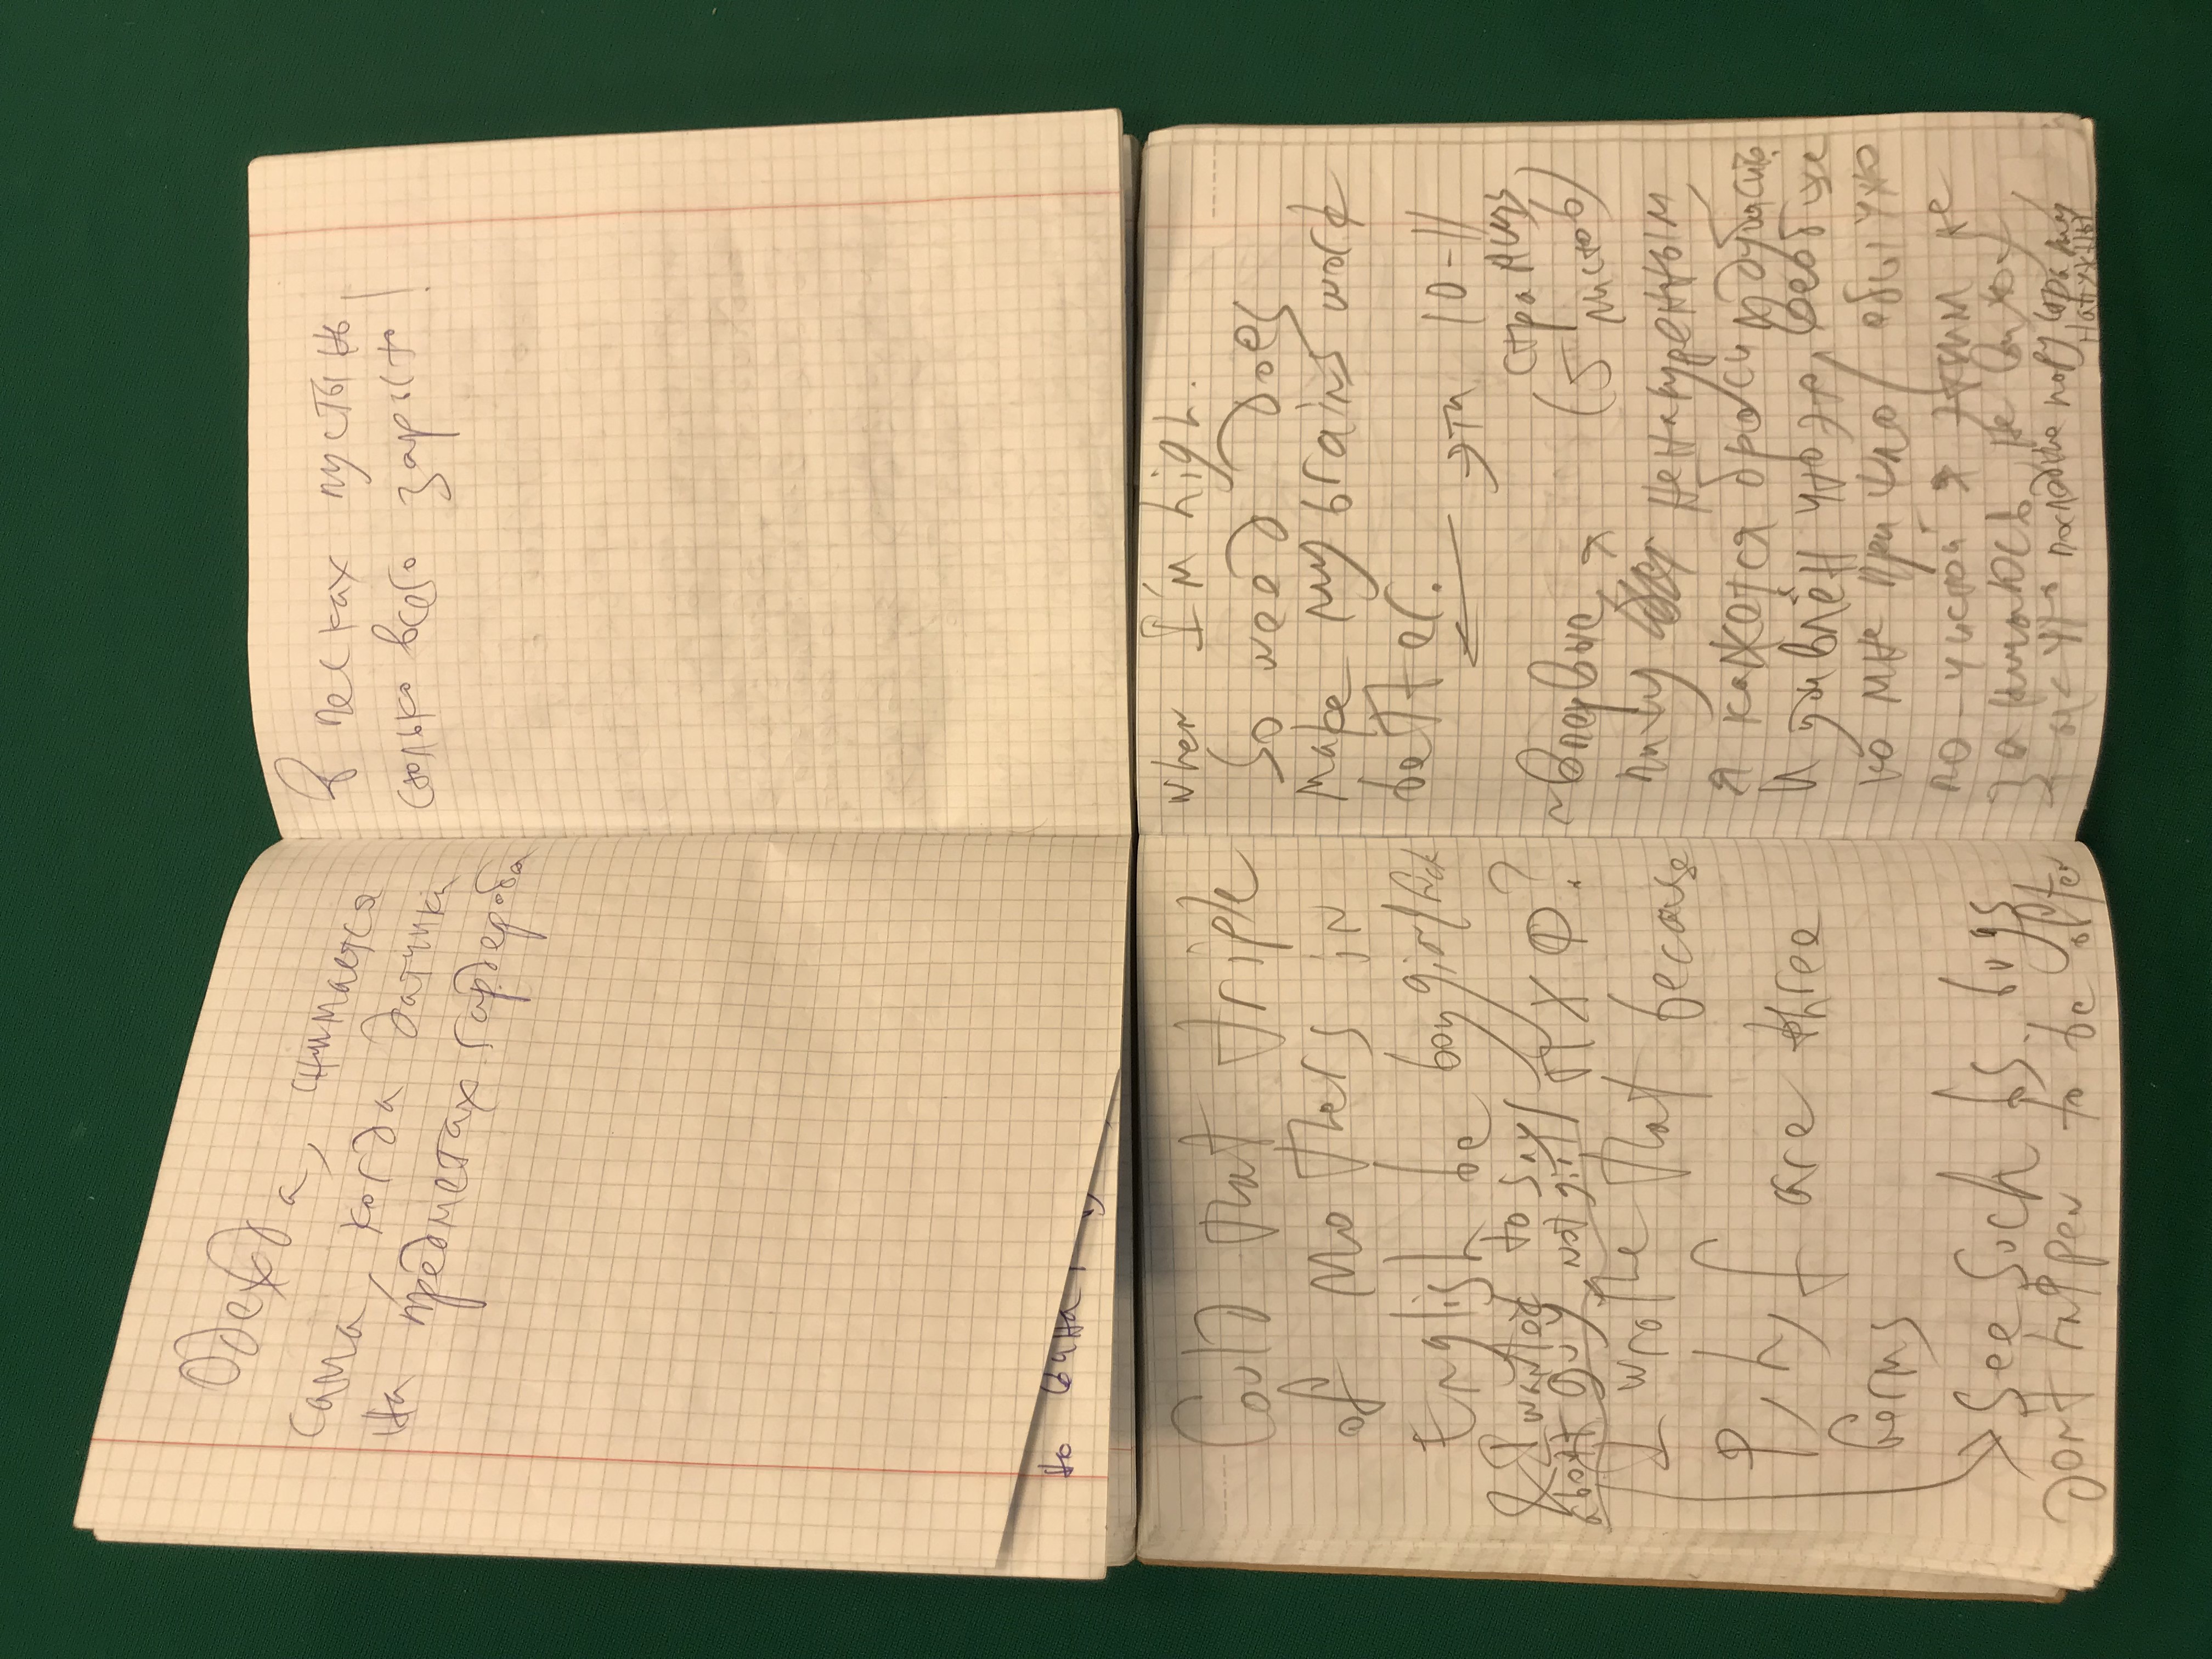 Одежда, снимается
сама, когда датчики
на предметах гардероба
В песках пустынь
столько всего зарыто!
но
Could that triple
of mothers in
English be boy girl fuck
& I wanted to say
about guy, not girl
П Х Ф?
I wrothe that because
P, h, f are three
See such bs. bugs
don't happen to be often
when I'm high.
So weed does
make my brains work
better.
← эти 10-11
страниц
(5 листов)
~Впервые я
пишу ненакуренным,
я кажется бросил дубасить.
И удивлён что это вообще
ко мне пришло, обычно
по-чистой я этим не
занимаюсь, не
последние пару страниц